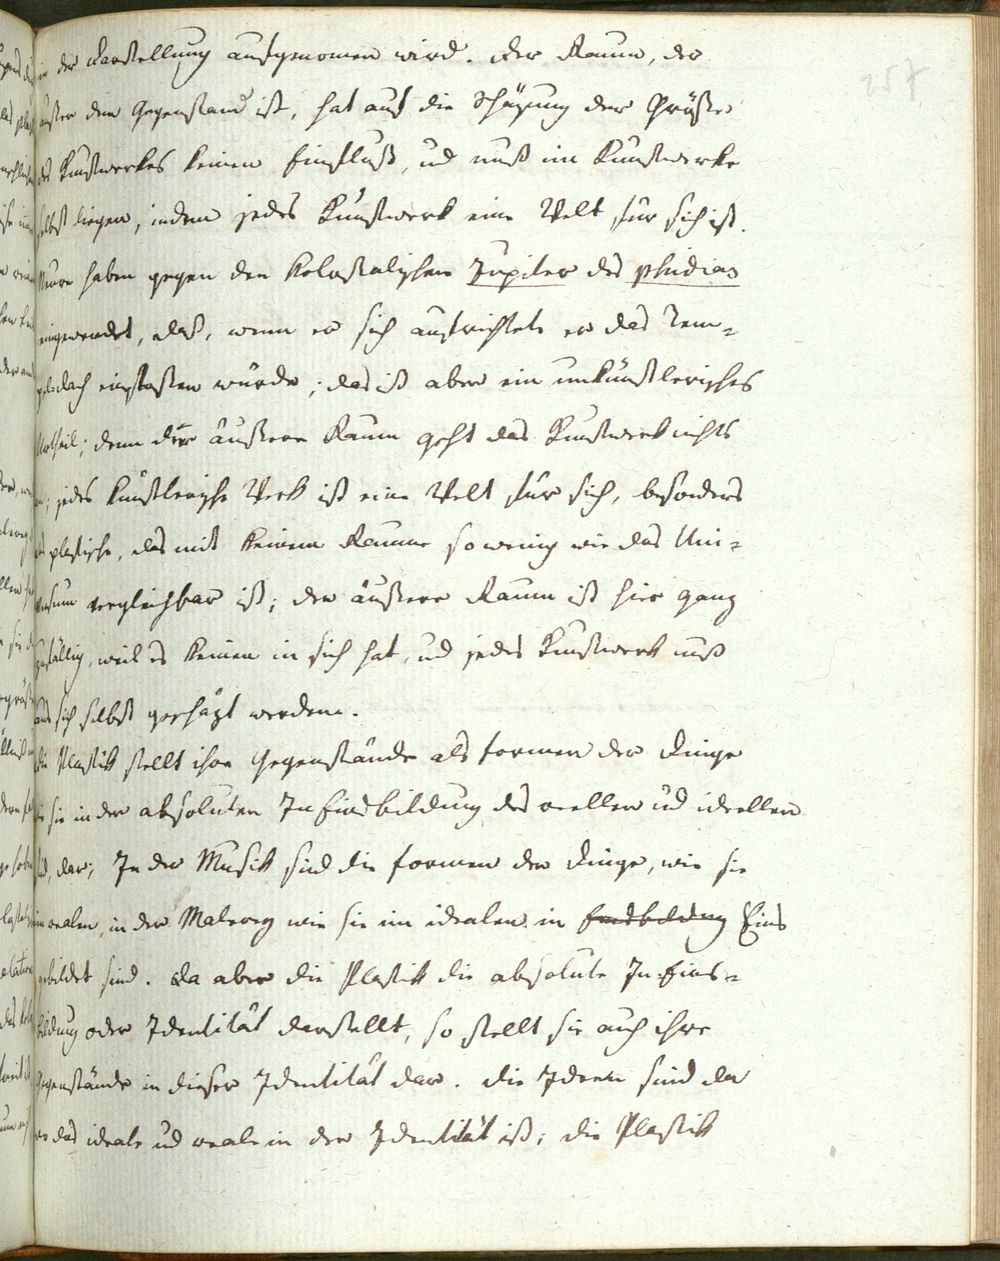 257
in der Darstellung aufgenomen wird. Der Raum, der
außer dem Gegenstand ist, hat auf die Schäzung der Größe
des Kunstwerkes keinen Einfluß, ud muß im Kunstwerke
selbst liegen, indem jedes Kunstwerk eine Welt für sich ist.
Neure haben gegen den kolossalischen Jupiter des Phidias
eingewendet, daß, wenn er sich aufrichtete er das Tem-
peldach einstossen würde; das ist aber ein unkünstlerisches
Urtheil; denn der äußere Raum geht das Kunstwerk nichts
an; jedes künstlerische Werk ist eine Welt für sich, besonders
das plastische, das mit keinem Raume so wenig wie das Uni-
versum vergleichbar ist; der äußere Raum ist hier ganz
zufällig, weil es keinen in sich hat, ud jedes Kunstwerk muß
aus sich selbst geschäzt werden.
Die Plastik stellt ihre Gegenstände als Formen der Dinge
wie sie in der absoluten In Einsbildung des reellen ud ideellen
sind, dar; In der Musik sind die Formen der Dinge, wie sie
im realen, in der Malerey wie sie im idealen in Einsbildung Eins
gebildet sind. Da aber die Plastik die absolute In-Eins-
bildung oder Identität darstellt, so stellt sie auch ihre
Gegenstände in dieser Identität dar. Die Ideen sind da
wo das ideale ud reale in der Identität ist; die Plastik